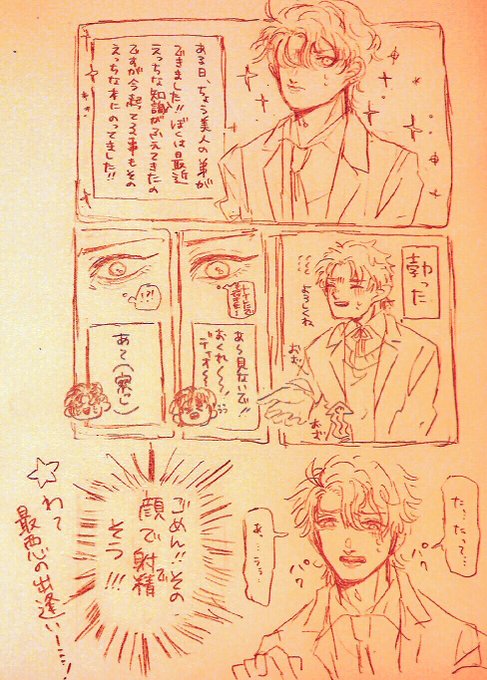 ある日、ちょう美人の弟が
できました!!ぼくは最近
えっちな知識がふえてきたの
ですが今起ってる事もその
えっちな本にのってました!!
勃った
よろしくね
おず
おず
あ〜見ないで!!
おくれ〜〜!
ディオ〜〜
!?!
あて(察し)
た…だって…
あ…うぅ
ごめん!!その
顔で射精
でそう!!!
☆わて
最悪の出逢いー…!